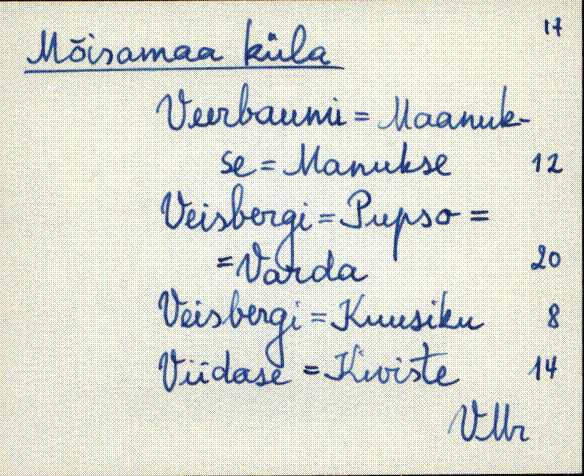 17
Mõisamaa küla
Veerbaumi = Maanuk-
se = Manukse 12
Veisbergi = Pupso =
= Varda 20
Veisbergi = Kuusiku 8
Viidase = Kiviste 14
VMr